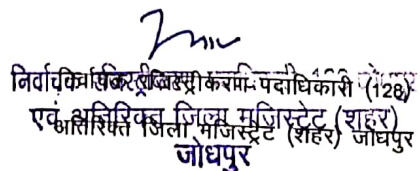 निर्वाचक रजिस्ट्रीकरण पदाधिकारी (128)
एवं अतिरिक्त जिला मजिस्ट्रेट (शहर)
अतिरिक्त जिला मजिस्ट्रेट (शहर) जोधपुर
जोधपुर